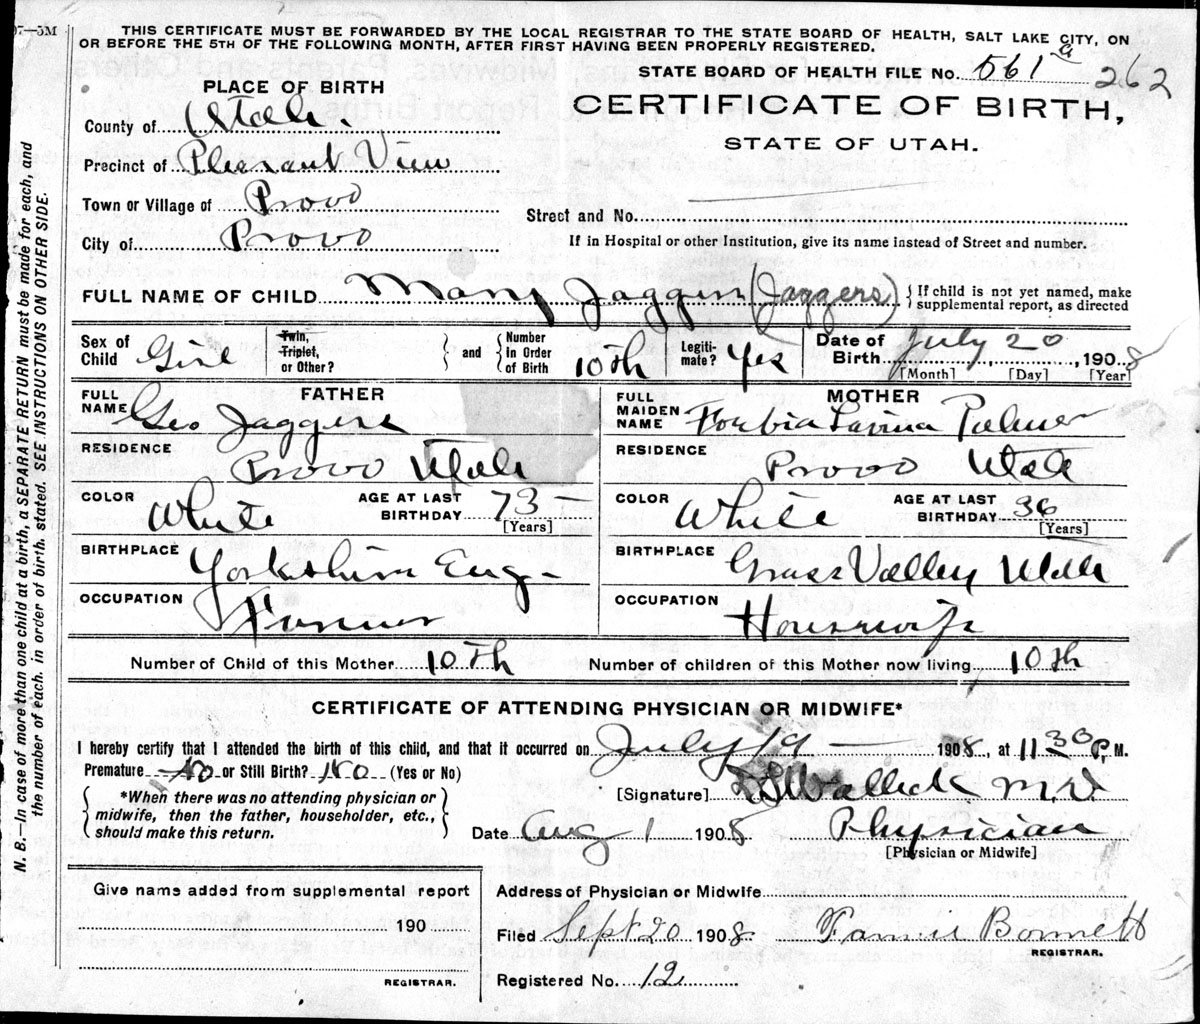 07—5M
THIS CERTIFICATE MUST BE FORWARDED BY THE LOCAL REGISTRAR TO THE STATE BOARD OF HEALTH, SALT LAKE CITY, ON
OR BEFORE THE 5TH OF THE FOLLOWING MONTH, AFTER FIRST HAVING BEEN PROPERLY REGISTERED.
STATE BOARD OF HEALTH FILE No. 561 a 262
PLACE OF BIRTH
CERTIFICATE OF BIRTH,
STATE OF UTAH.
County of Utah
Precinct of Pleasant View
Town or Village of Provo
Street and No.
City of Provo
If in Hospital or other Institution, give its name instead of Street and number.
FULL NAME OF CHILD Mary Jaggers (Jaggers) { If child is not yet named, make
supplemental report, as directed
Sex of Child Girl
Twin, Triplet, or Other? } and { Number in Order of Birth 10th
Legiti-mate? Yes
Date of Birth July 20, 1908
[Month] [Day] [Year]
FATHER
FULL NAME Geo Jaggers
MOTHER
FULL MAIDEN NAME Lavina Palmer
RESIDENCE Provo Utah
RESIDENCE Provo Utah
COLOR White AGE AT LAST BIRTHDAY 73 [Years]
COLOR White AGE AT LAST BIRTHDAY 36 [Years]
BIRTHPLACE Yorkshire Eng-
BIRTHPLACE Grass Valley Utah
OCCUPATION Farmer
OCCUPATION Housewife
Number of Child of this Mother 10th
Number of children of this Mother now living 10th
CERTIFICATE OF ATTENDING PHYSICIAN OR MIDWIFE*
I hereby certify that I attended the birth of this child, and that it occurred on July 19 — 1908, at 11 30 P. M.
Premature No or Still Birth? No (Yes or No)
*When there was no attending physician or
midwife, then the father, householder, etc.,
should make this return.
[Signature] M.D.
Date Aug 1 1908 Physician
[Physician or Midwife]
Give name added from supplemental report
190
REGISTRAR.
Address of Physician or Midwife
Filed Sept 20 1908 Fannie Bonnett
REGISTRAR.
Registered No. 12
N. B.—In case of more than one child at a birth, a SEPARATE RETURN must be made for each, and
the number of each, in order of birth, stated. SEE INSTRUCTIONS ON OTHER SIDE.